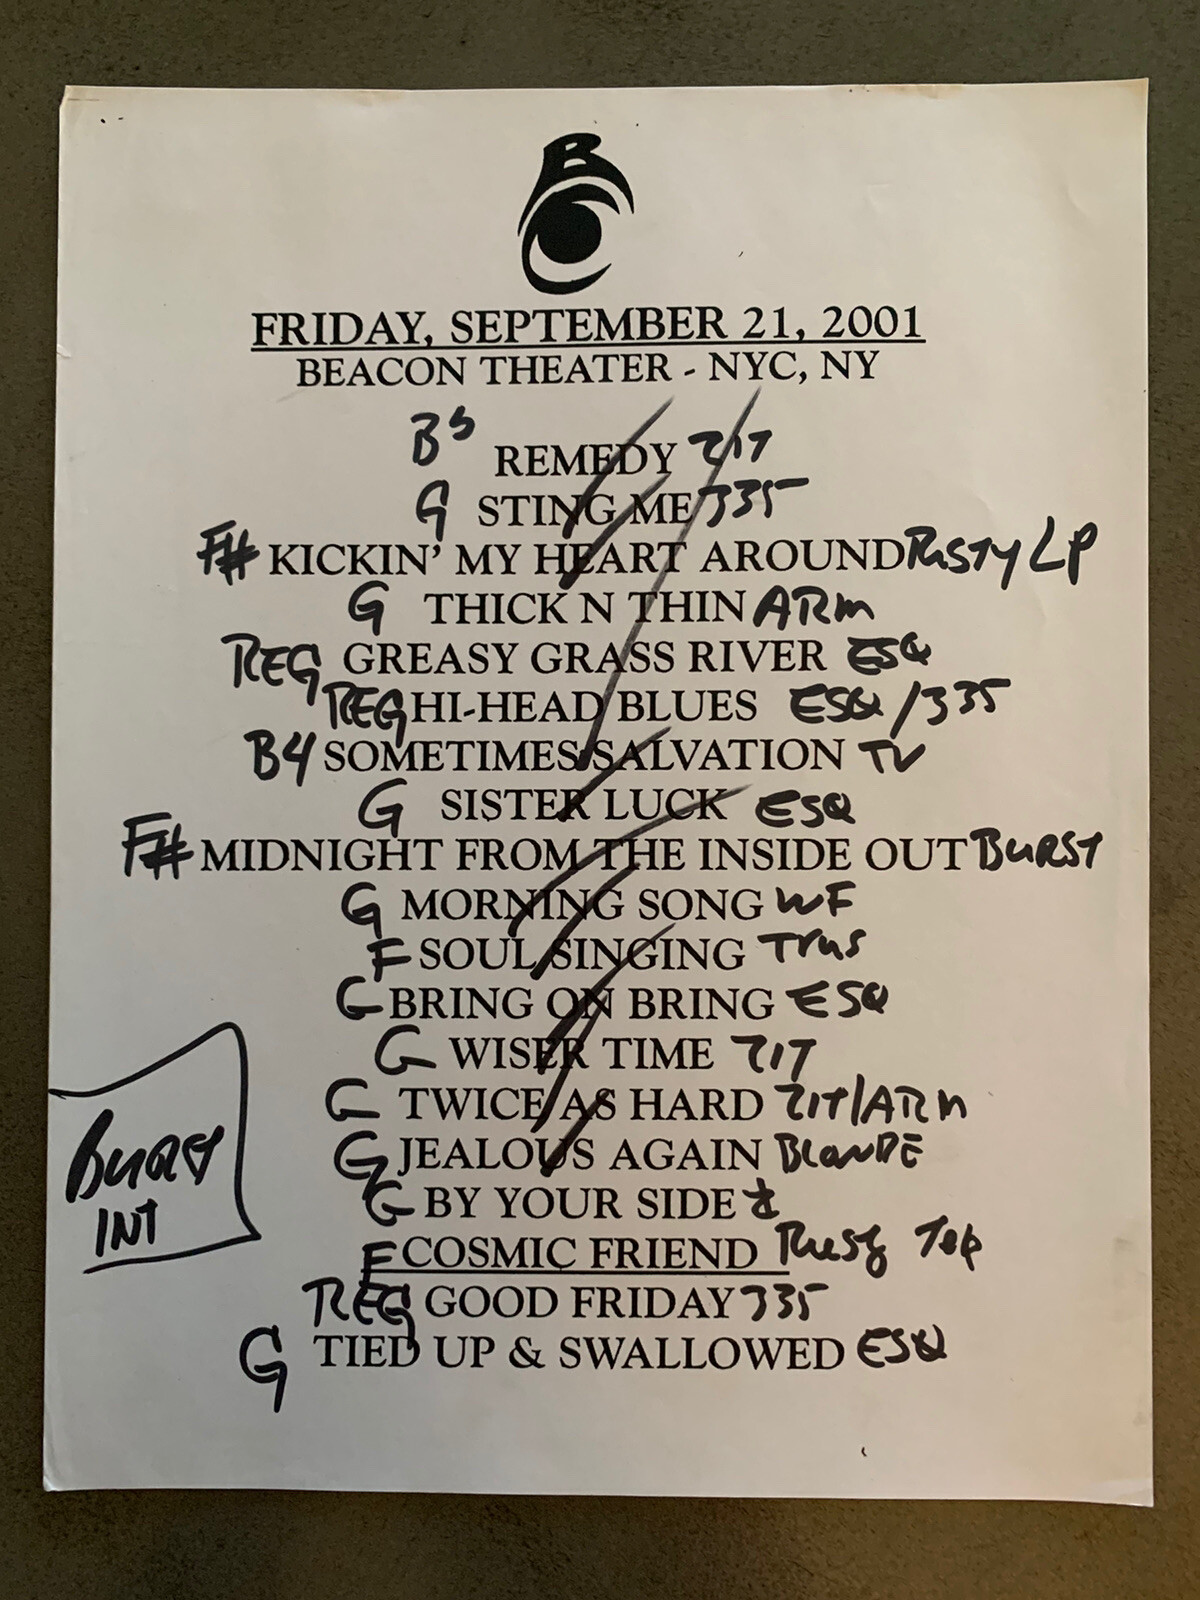 B
FRIDAY, SEPTEMBER 21, 2001
BEACON THEATER - NYC, NY
REMEDY
G STING ME 335
F# KICKIN' MY HEART AROUND RUSTY LP
G THICK N THIN ARM
REG GREASY GRASS RIVER ESQ
REG HI-HEAD BLUES ESQ/335
B4 SOMETIMES SALVATION TV
G SISTER LUCK ESQ
F# MIDNIGHT FROM THE INSIDE OUT BURST
G MORNING SONG WF
F SOUL SINGING TRUS
G BRING ON BRING ESQ
G WISER TIME
G TWICE AS HARD /ARM
G JEALOUS AGAIN BLONDE
G BY YOUR SIDE
F COSMIC FRIEND
REG GOOD FRIDAY 335
G TIED UP & SWALLOWED ESQ
BURST
INT